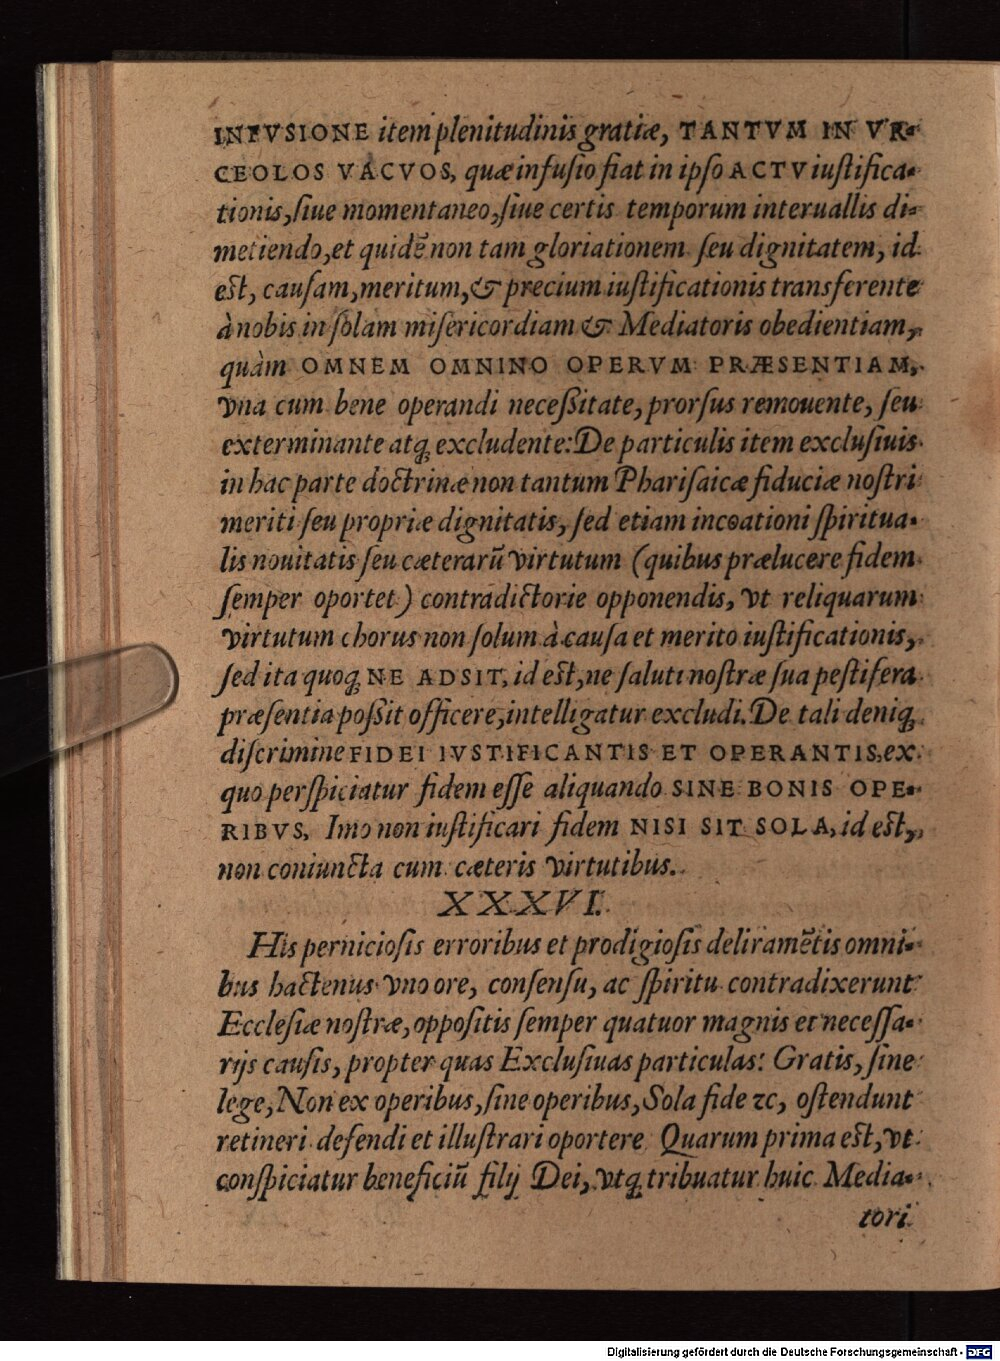 INFVSIONE item plenitudinis gratiæ, TANTVM IN VR-
CEOLOS VACVOS, quæ infusio fiat in ipso ACTV iustifica-
tionis, siue momentaneo, siue certis temporum interuallis di-
metiendo, et quidẽ non tam gloriationem seu dignitatem, id
est, causam, meritum, & precium iustificationis transferente
à nobis in solam misericordiam & Mediatoris obedientiam,
quàm OMNEM OMNINO OPERVM PRÆSENTIAM,
vna cum bene operandi necessitate, prorsus remouente, seu
exterminante atq; excludente: De particulis item exclusiuis
in hac parte doctrinæ non tantum Pharisaicæ fiduciæ nostri
meriti seu propriæ dignitatis, sed etiam incoationi spiritua-
lis nouitatis seu cæterarũ virtutum (quibus prælucere fidem
semper oportet) contradictorie opponendis, vt reliquarum
virtutum chorus non solum à causa et merito iustificationis,
sed ita quoq; NE ADSIT, id est, ne saluti nostræ sua pestifera
præsentia possit officere, intelligatur excludi. De tali deniq;
discrimine FIDEI IVSTIFICANTIS ET OPERANTIS, ex
quo perspiciatur fidem esse aliquando SINE BONIS OPE-
RIBVS, Imo non iustificari fidem NISI SIT SOLA, id est,
non coniuncta cum cæteris virtutibus.
XXXVI.
His perniciosis erroribus et prodigiosis deliramẽtis omni-
bus hactenus vno ore, consensu, ac spiritu contradixerunt
Ecclesiæ nostræ, oppositis semper quatuor magnis et necessa-
rijs causis, propter quas Exclusiuas particulas: Gratis, sine
lege, Non ex operibus, sine operibus, Sola fide ꝛc, ostendunt
retineri defendi et illustrari oportere. Quarum prima est, vt
conspiciatur beneficiũ filij Dei, vtq; tribuatur huic Media-
tori
Digitalisierung gefördert durch die Deutsche Forschungsgemeinschaft - DFG